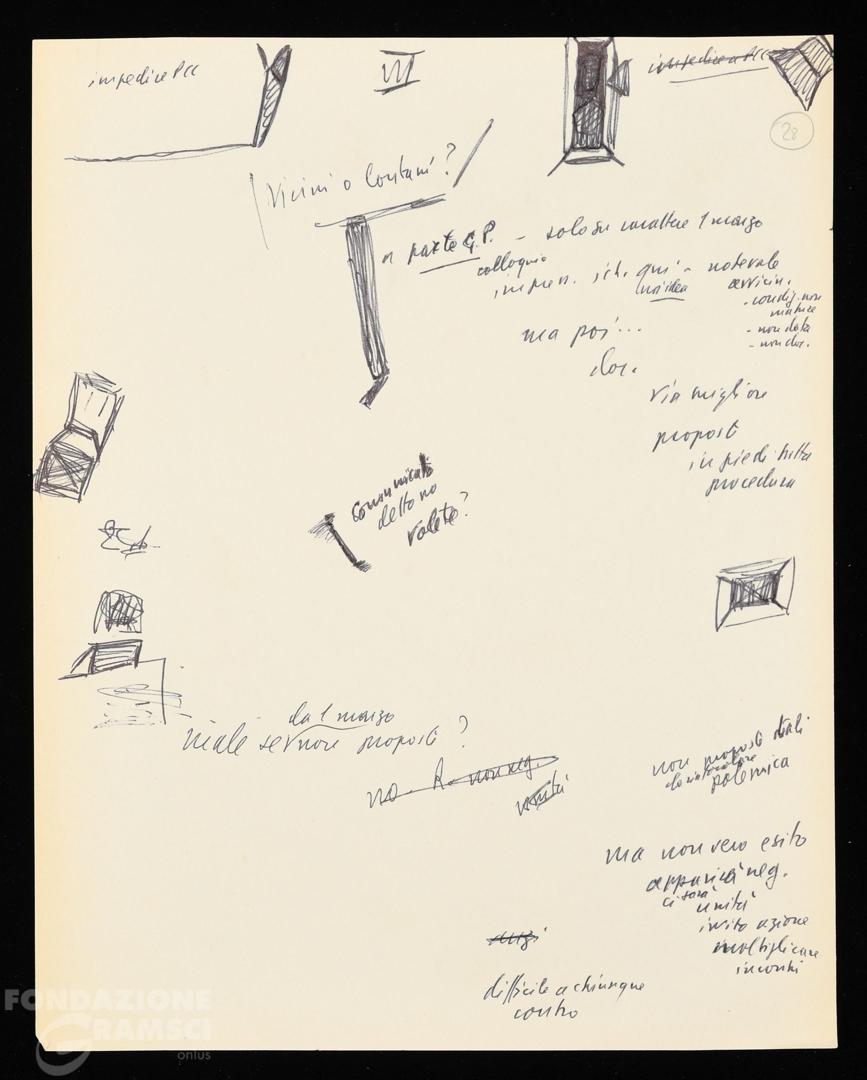 impedire PCC
VI
impedire PCC
28
Vicini o lontani?
a parte G.P. - solo su carattere 1 marzo
colloquio
impress. ich. qui - notevole
un'idea
avvicin.
- condiz. non
mature
- non data
- non doc.
ma poi...
doc.
via migliore
proposti
in piedi tutta
procedura
Comunicato
detto no
volete?
da 1 marzo
male se non proposti?
no. R. non neg.
unità
non proposti tali
da
polemica
ma non vero esito
apparirà neg.
ci sarà
unità
invito azione
moltiplicare
incontri
difficile a chiunque
contro
FONDAZIONE
GRAMSCI
onlus